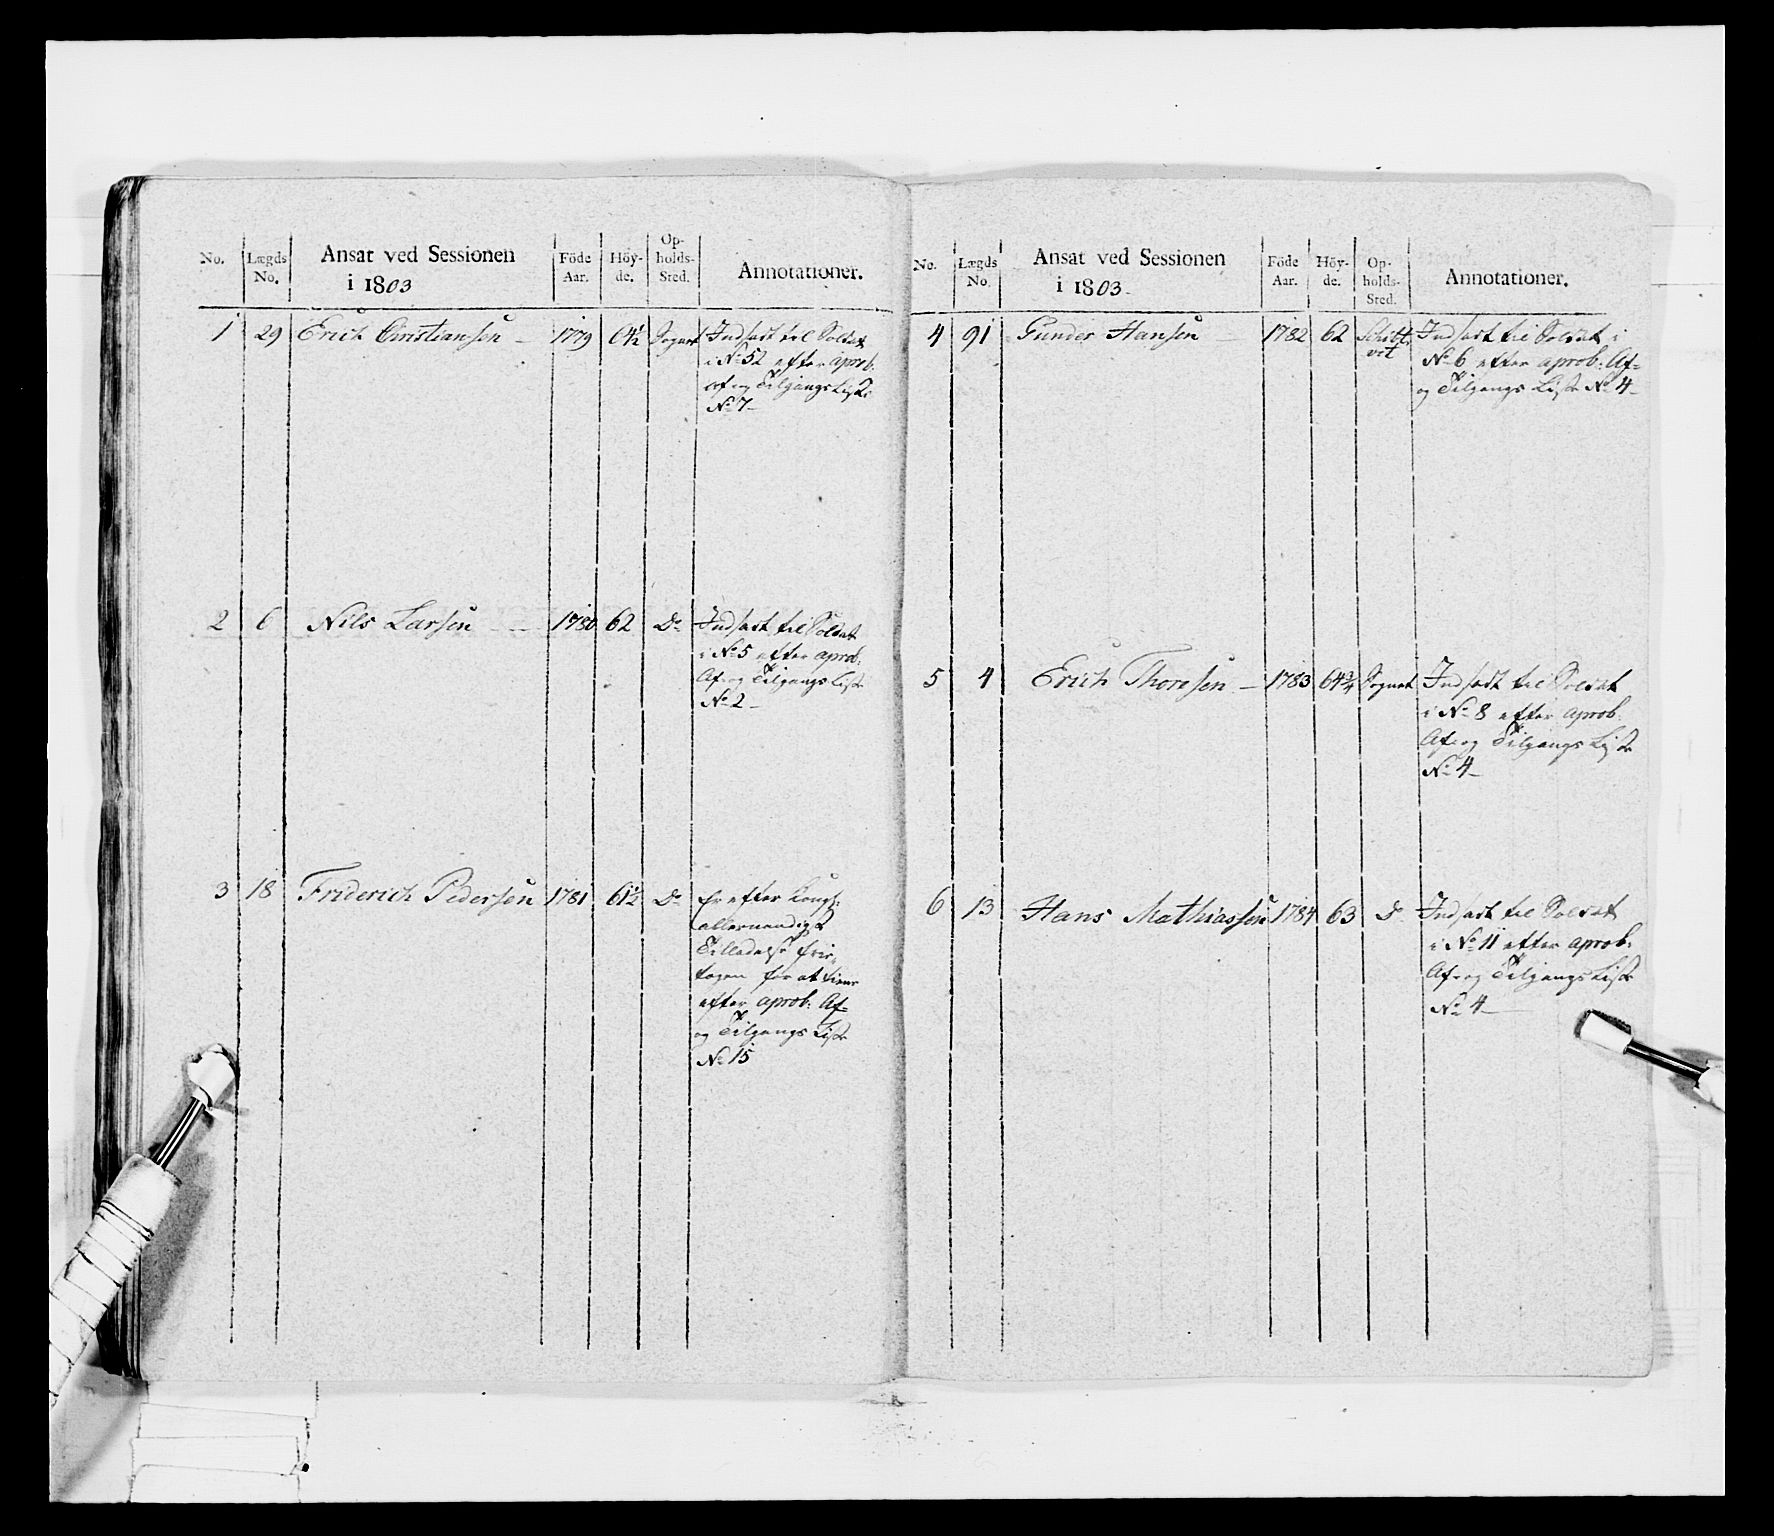 No. Lægds No. Ansat ved Sessionen i 1803 Föde Aar. Höy-de. Op-holds-Sted. Annotationer.
1 29 Erich Christiansen 1779 64½ Sognet Indsadt til Soldat
i No 52 efter aprob:
Af og Tilgangs Liste
No 7
2 6 Nils Larsen 1780 62 Do Indsadt til Soldat
i No 5 efter aprob:
Af- og Tilgangs Liste
No 2
3 18 Friderich Pedersen 1781 61½ Do Er efter Kongl:
allernaadigst
Tilladelse frie-
tagen for at tiene
efter aprob: Af-
og Tilgangs Liste
No 15
No. Lægds No. Ansat ved Sessionen i 1803 Föde Aar. Höy-de. Op-holds-Sted. Annotationer.
4 91 Gunder Hansen 1782 62 Indsadt til Soldat i
No 6 efter aprob: Af-
og Tilgangs Liste No 4
5 4 Erich Thoresen 1783 64¾ Sognet Indsadt til Soldat
i No 8 efter aprob:
Af- og Tilgangs Liste
No 4
6 13 Hans Mathiassen 1784 63 Do Indsadt til Soldat
i No 11 efter aprob:
Af- og Tilgangs Liste
No 4